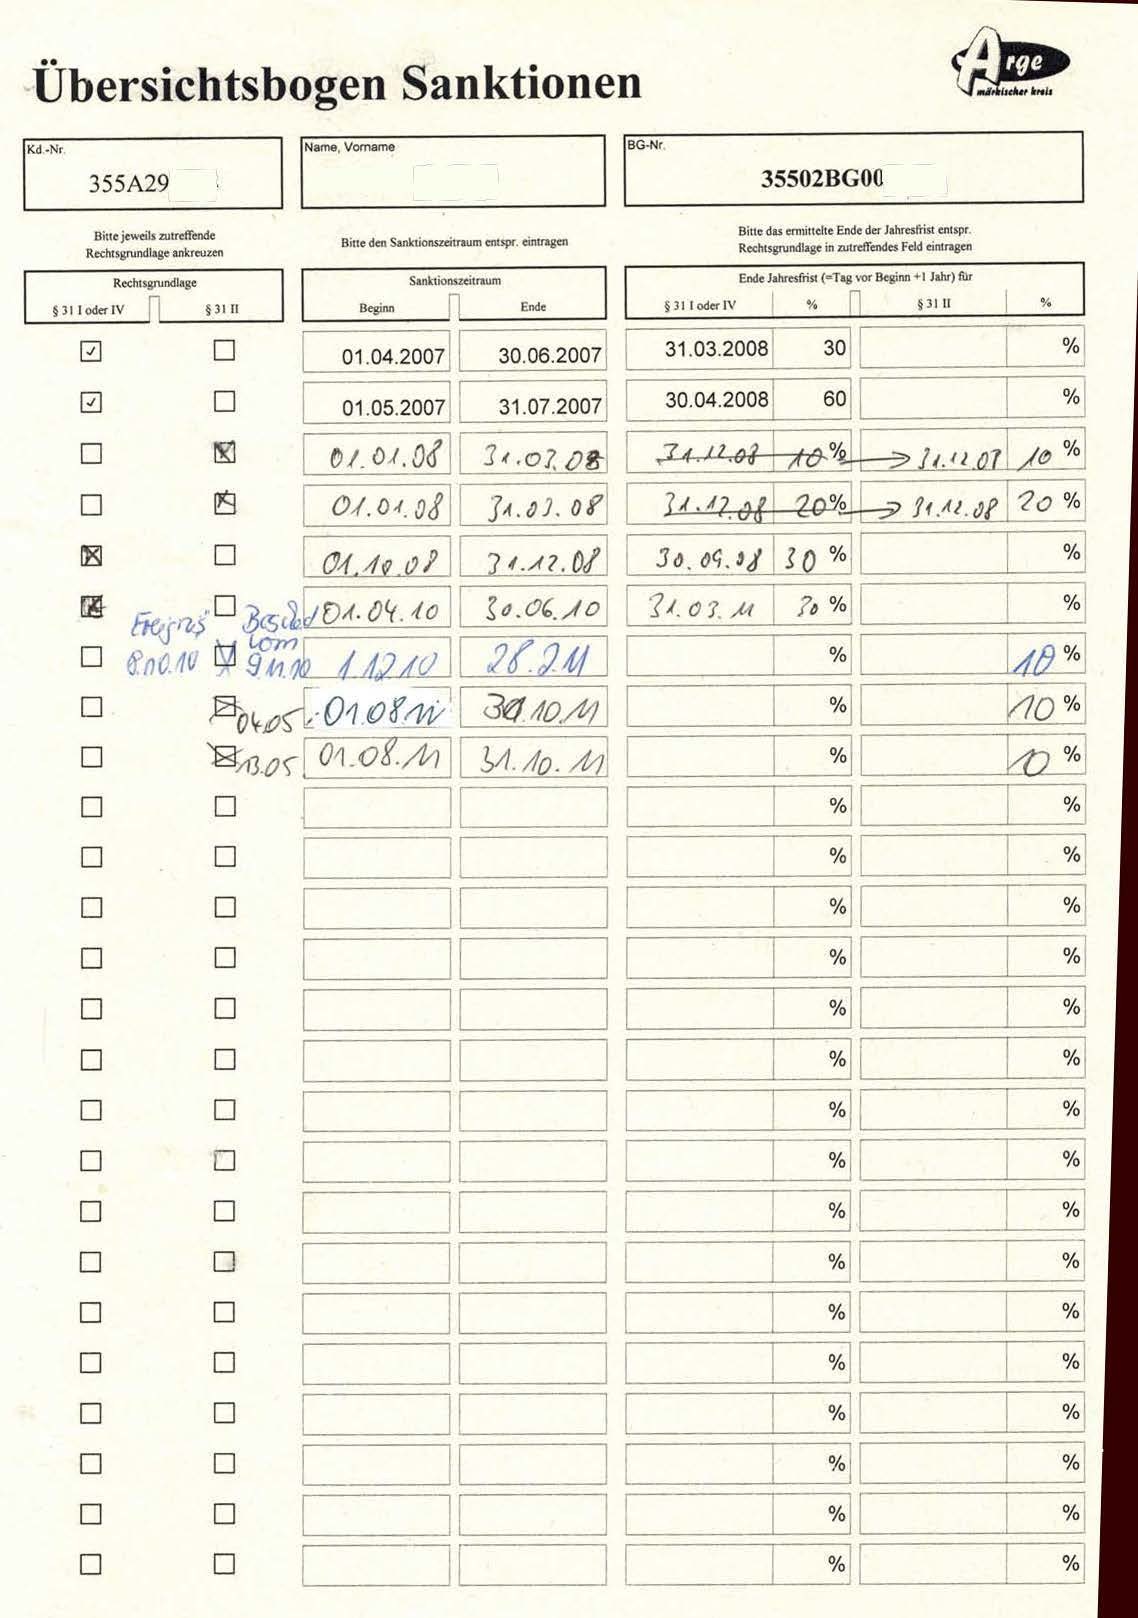 Übersichtsbogen Sanktionen
Arge
märkischer kreis
Kd.-Nr. Name, Vorname BG-Nr.
355A29 35502BG00
Bitte jeweils zutreffende
Rechtsgrundlage ankreuzen
Bitte den Sanktionszeitraum entspr. eintragen
Bitte das ermittelte Ende der Jahresfrist entspr.
Rechtsgrundlage in zutreffendes Feld eintragen
Rechtsgrundlage Sanktionszeitraum Ende Jahresfrist (=Tag vor Beginn +1 Jahr) für
§ 31 I oder IV § 31 II Beginn Ende § 31 I oder IV % § 31 II %
01.04.2007 30.06.2007 31.03.2008 30 %
01.05.2007 31.07.2007 30.04.2008 60 %
01.01.08 31.03.08 31.12.08 10% 31.12.08 10 %
01.01.08 31.03.08 31.12.08 20% 31.12.08 20 %
01.10.08 31.12.08 30.09.08 30 % %
01.04.10 30.06.10 31.03.11 30 % %
Ereignis Bescheid
vom
8.10.10 9.11.10 1.12.10 28.2.11 % 10 %
04.05 01.08.11 31.10.11 % 10 %
13.05 01.08.11 31.10.11 % 10 %
% %
% %
% %
% %
% %
% %
% %
% %
% %
% %
% %
% %
% %
% %
% %
% %